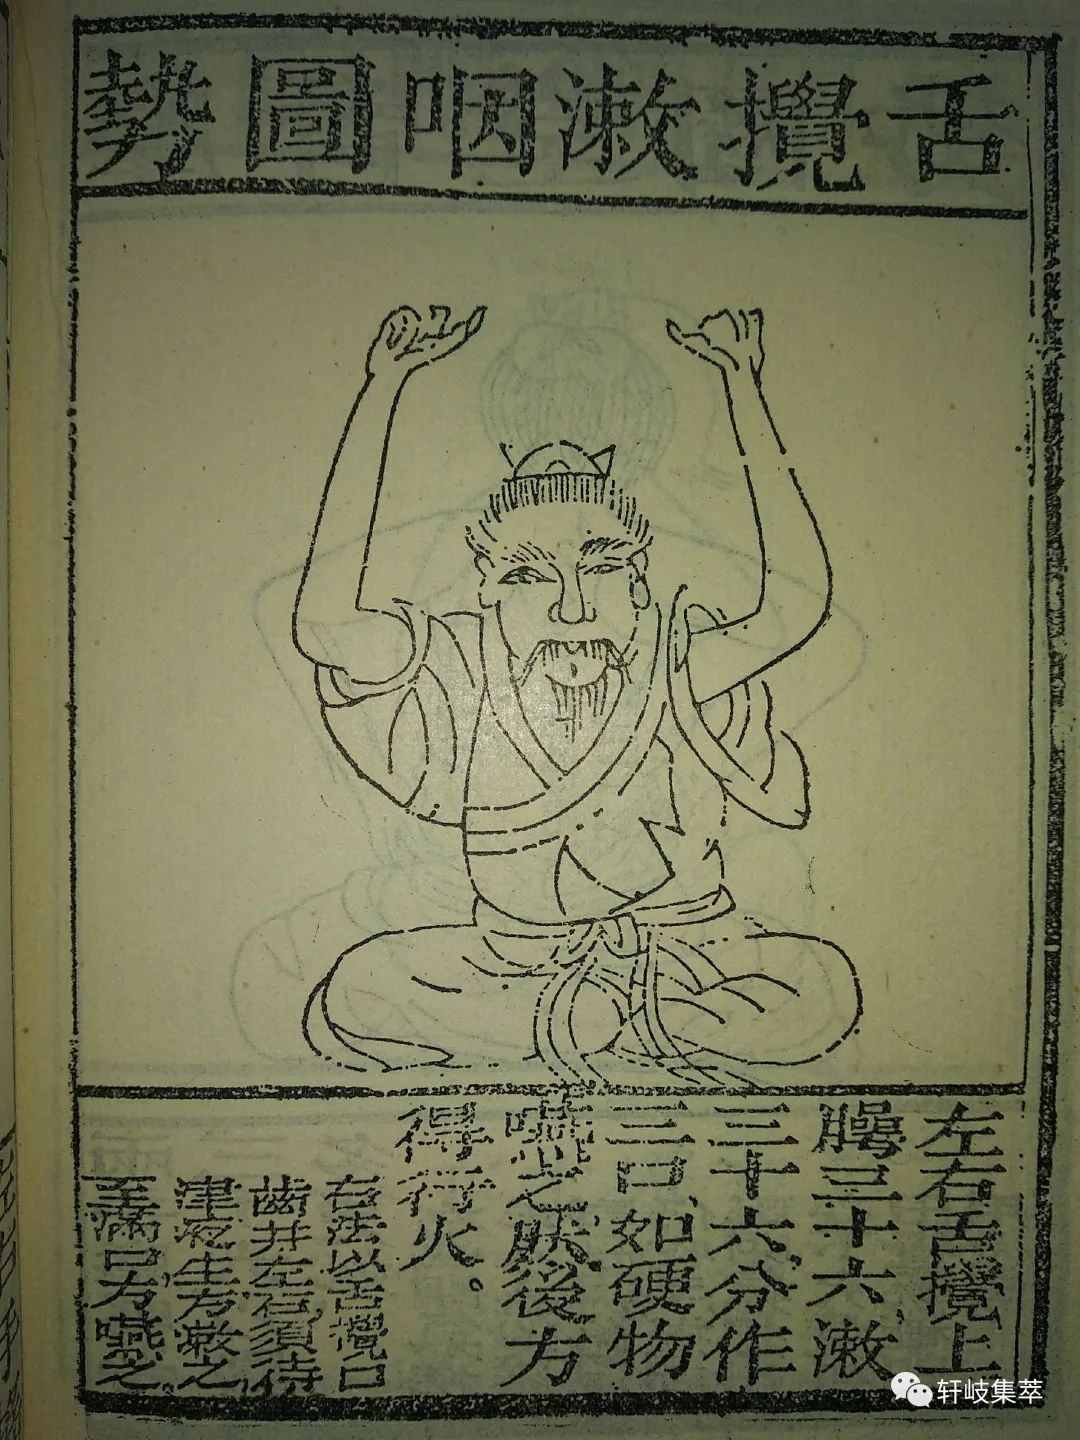 舌攪漱咽圖勢
左右舌攪上
腭三十六、漱
三十六、分作
三口、如硬物
嚥之、然後方
得行火。
右法以舌攪口
齒并左右、須待
津液生方漱之、
至滿口方嚥之。
轩岐集萃